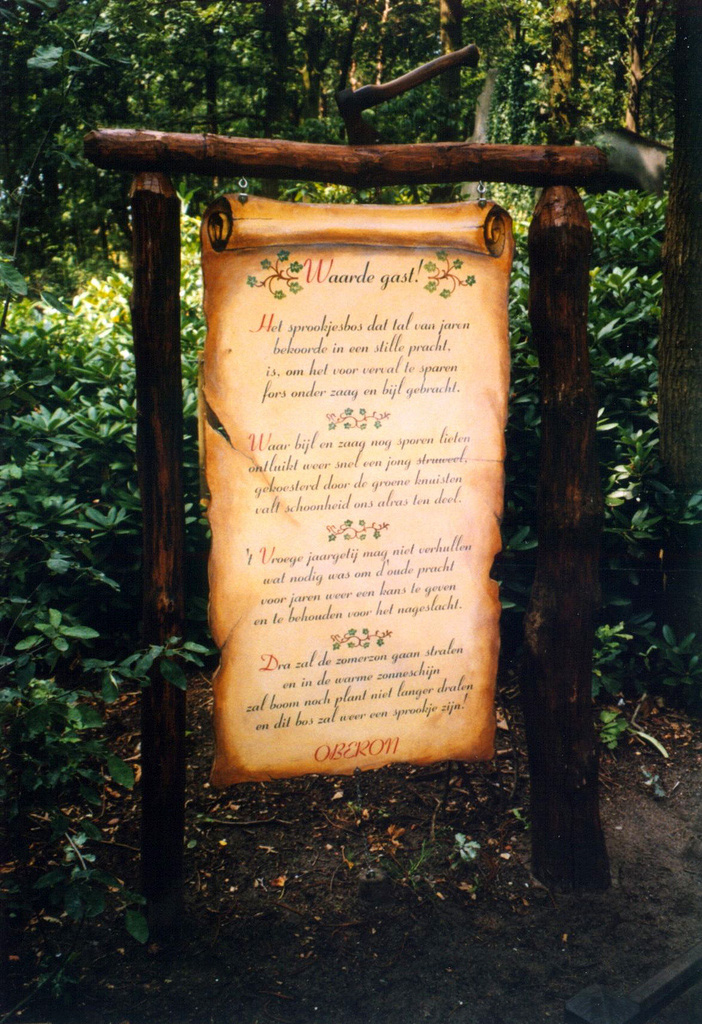 Waarde gast!
Het sprookjesbos dat tal van jaren
bekoorde in een stille pracht,
is, om het voor verval te sparen
fors onder zaag en bijl gebracht.
Waar bijl en zaag nog sporen lieten
ontluikt weer snel een jong struweel,
gekoesterd door de groene knuisten
valt schoonheid ons alras ten deel.
't Vroege jaargetij mag niet verhullen
wat nodig was om d'oude pracht
voor jaren weer een kans te geven
en te behouden voor het nageslacht.
Dra zal de zomerzon gaan stralen
en in de warme zonneschijn
zal boom noch plant niet langer dralen
en dit bos zal weer een sprookje zijn!
OBERON